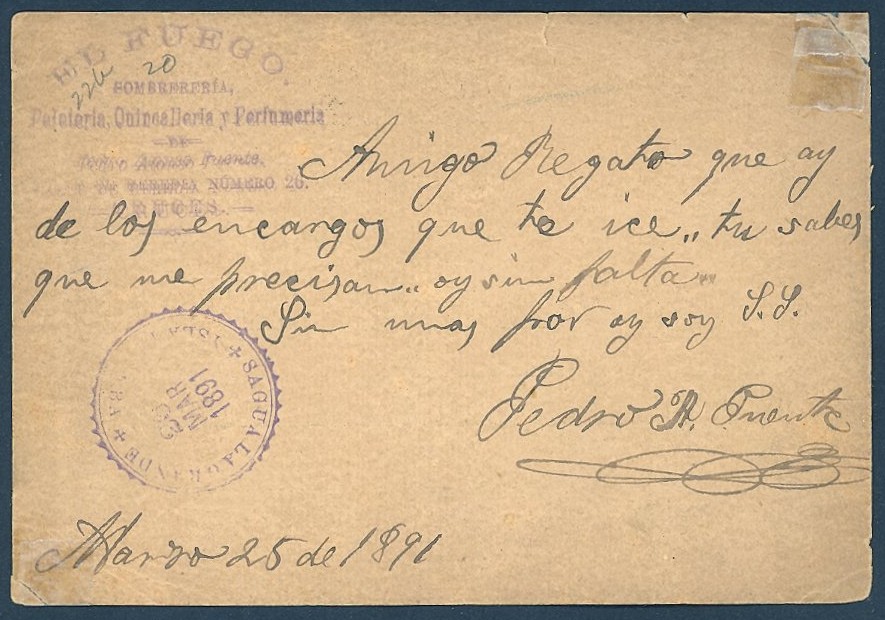 EL FUEGO.
226 20
SOMBRERERÍA,
Peletería, Quincallería y Perfumería
DE
Pedro Alonso Fuente.
NÚMERO 20.
Amigo Regato que ay
de los encargos que te ice,, tu sabes
que me precisan,, oy sin falta,,
Sin mas por oy soy S.S.
Pedro A. Fuente
SAGUA LA GRANDE
MAR
1891
Marzo 25 de 1891